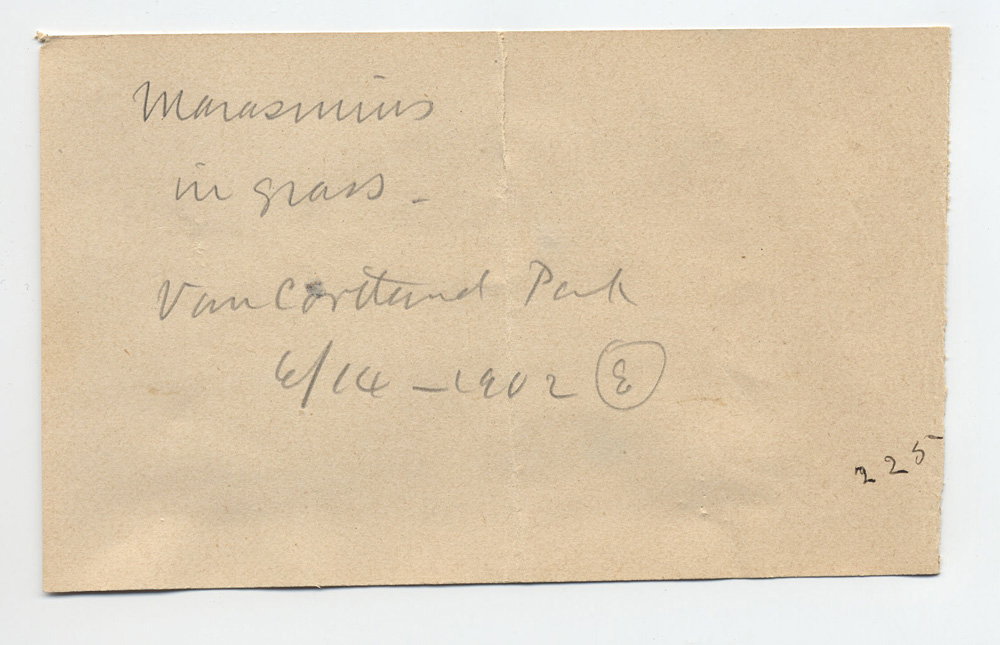 Marasmius
in grass -
Van Cortland Park
6/14 - 1902 E
225